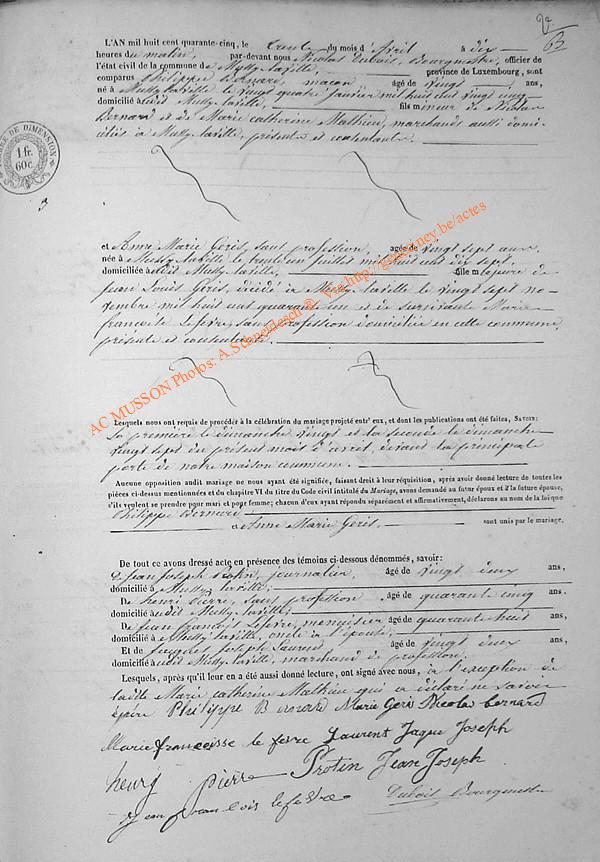 63
L'AN mil huit cent quarante-cinq, le trente du mois d'Avril à dix
heures du matin, par-devant nous Nicolas Dubois, Bourgmestre, officier de
l'état civil de la commune de Mussy-laville, province de Luxembourg, sont
comparus Philippe Bernard, maçon, âgé de vingt ans,
né à Mussy-laville le vingt quatre janvier mil huit cent vingt cinq
domicilié audit Mussy-laville, fils mineur de Nicolas
Bernard et de Marie catherine Mathieu, marchands aussi domi-
ciliés à Mussy-laville, présents et consentants.
DE DIMENSION
1 fr.
60c.
et Anne Marie Goris, sans profession, agée de vingt sept ans,
née à Mussy-laville le trente un juillet mil huit cent dix sept,
domiciliée audit Mussy-laville, fille majeure de
Jean Louis Goris, décédé à Mussy-laville le vingt sept no-
vembre mil huit cent quarante un et de survivante Marie
françoise Lefevre, sans profession domiciliée en cette commune,
présente et consentante.
AC MUSSON Photos: A.Schneidesch ®- Via http://geneancy.be/actes
Lesquels nous ont requis de procéder à la célébration du mariage projeté entr' eux, et dont les publications ont été faites, SAVOIR:
La première le dimanche vingt et la seconde le dimanche
vingt sept du présent mois d'avril, devant la principale
porte de notre maison commune.
Aucune opposition audit mariage ne nous ayant été signifiée, faisant droit à leur réquisition, après avoir donné lecture de toutes les
pièces ci-dessus mentionnées et du chapitre VI du titre du Code civil intitulé du Mariage, avons demandé au futur époux et à la future épouse,
s'ils veulent se prendre pour mari et pour femme; chacun d'eux ayant répondu séparément et affirmativement, déclarons au nom de la loi que
Philippe Bernard
et Anne Marie Goris, sont unis par le mariage.
De tout ce avons dressé acte en présence des témoins ci-dessous dénommés, savoir:
De Jean Joseph Protin, journalier, âgé de vingt deux ans,
domicilié à Mussy-laville;
De henri Pierre, sans profession, âgé de quarante cinq ans,
domicilié audit Mussy-laville;
De jean françois Lefevre, menuisier âgé de quarante huit ans,
domicilié à Mussy-laville, oncle à l'épouse;
Et de Jacques Joseph Laurent, âgé de vingt deux ans,
domicilié audit Mussy-laville, marchand de profession.
Lesquels, après qu'il leur en a été aussi donné lecture, ont signé avec nous, à l'exception de
ladite Marie catherine Mathieu qui a déclaré ne savoir
Philippe Bernard Marie Goris Nicolas bernard
Marie francoisse le fevre Laurent Jaque Joseph
henry pierre Protin Jean Joseph
jean francois lefevre Dubois Bourgmestre